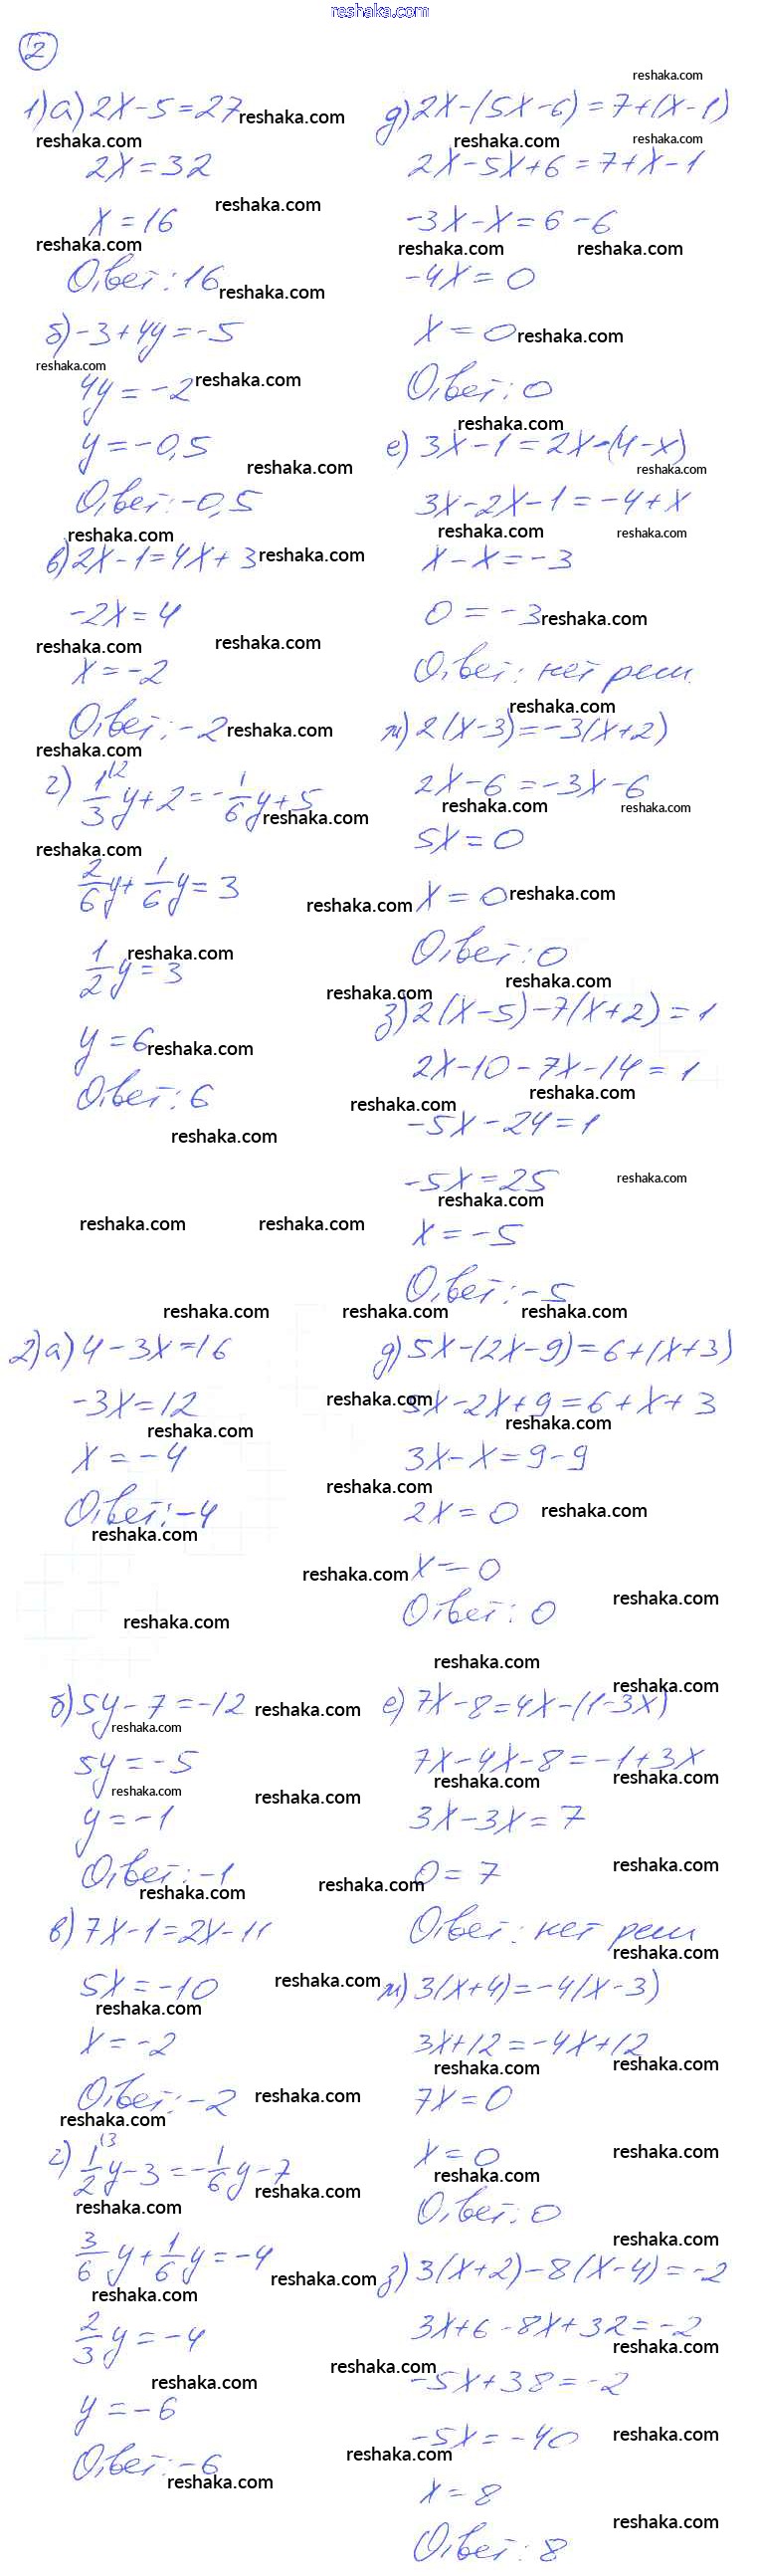 reshaka.com
2
1) а) 2x-5=27
2x=32
x=16
Ответ: 16
б) -3+4y=-5
4y=-2
y=-0,5
Ответ: -0,5
в) 2x-1=4x+3
-2x=4
x=-2
Ответ: -2
г) 1/3 y+2=-1/6 y+5
2/6 y+1/6 y=3
1/2 y=3
y=6
Ответ: 6
д) 2x-(5x-6)=7+(x-1)
2x-5x+6=7+x-1
-3x-x=6-6
-4x=0
x=0
Ответ: 0
е) 3x-1=2x-(4-x)
3x-2x-1=-4+x
x-x=-3
0=-3
Ответ: нет реш.
ж) 2(x-3)=-3(x+2)
2x-6=-3x-6
5x=0
x=0
Ответ: 0
з) 2(x-5)-7(x+2)=1
2x-10-7x-14=1
-5x-24=1
-5x=25
x=-5
Ответ: -5
2) а) 4-3x=16
-3x=12
x=-4
Ответ: -4
б) 5y-7=-12
5y=-5
y=-1
Ответ: -1
в) 7x-1=2x-11
5x=-10
x=-2
Ответ: -2
г) 1/2 y-3=-1/6 y-7
3/6 y+1/6 y=-4
2/3 y=-4
y=-6
Ответ: -6
д) 5x-(2x-9)=6+(x+3)
5x-2x+9=6+x+3
3x-x=9-9
2x=0
x=0
Ответ: 0
е) 7x-8=4x-(1-3x)
7x-4x-8=-1+3x
3x-3x=7
0=7
Ответ: нет реш
ж) 3(x+4)=-4(x-3)
3x+12=-4x+12
7x=0
x=0
Ответ: 0
з) 3(x+2)-8(x-4)=-2
3x+6-8x+32=-2
-5x+38=-2
-5x=-40
x=8
Ответ: 8